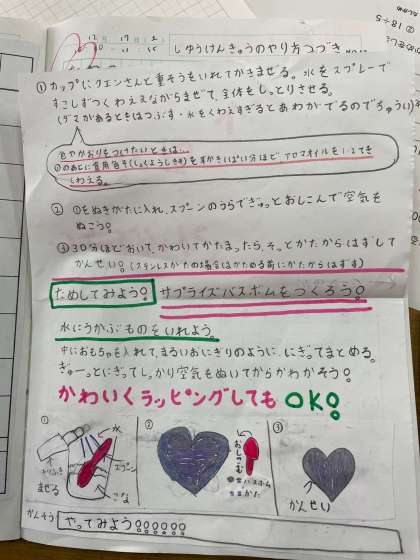 じゆうけんきゅうのやり方つづき
①カップにクエンさんと重そうをいれてかきまぜる。水をスプレーで
すこしずつくわえながらまぜて、全体をしっとりさせる。
(ダマがあるときはつぶす・水をくわえすぎるとあわがでるのでちゅうい)
色やかおりをつけたいときは…
①のあとに食用色そ(しょくようしきそ)を
アロマオイルを1~2てき
くわえる。
② ①をぬきがたに入れ、スプーンのうらでぎゅっとおしこんで空気を
ぬこう。
③30分ほどおいて、かわいてかたまったら、そっとかたからはずして
かんせい。(ステンレスがたの場合はかためる前にかたからはずす)
ためしてみよう!
サプライズバスボムをつくろう!
水にうかぶものをいれよう。
中におもちゃを入れて、まるいおにぎりのように、にぎってまとめる。
ぎゅーっとにぎってしっかり空気をぬいてからかわかそう!
かわいくラッピングしてもOK!
①
水
スプーン
こな
まぜる
②
おしこむ
かた
③
かんせい
かんそう
やってみよう!!!!!!